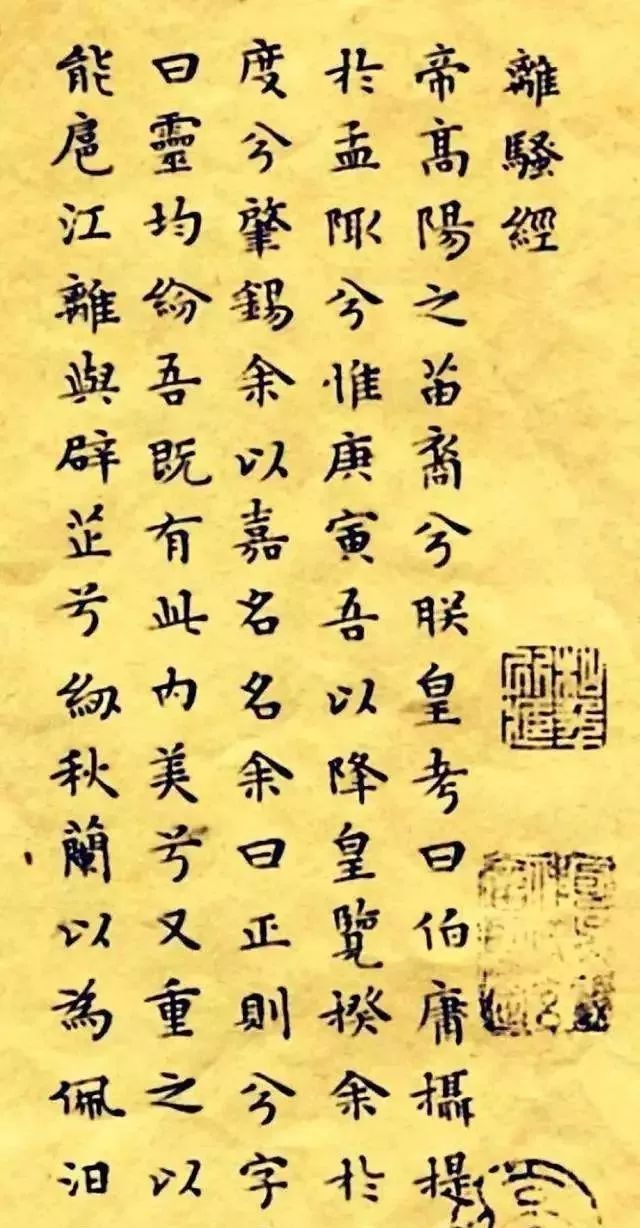 離騷經
帝髙陽之苗裔兮朕皇考曰伯庸攝提
於孟陬兮惟庚寅吾以降皇覽揆余於
度兮肇錫余以嘉名名余曰正則兮字
曰靈均紛吾既有此内美兮又重之以
能扈江離與辟芷兮紉秋蘭以為佩汩